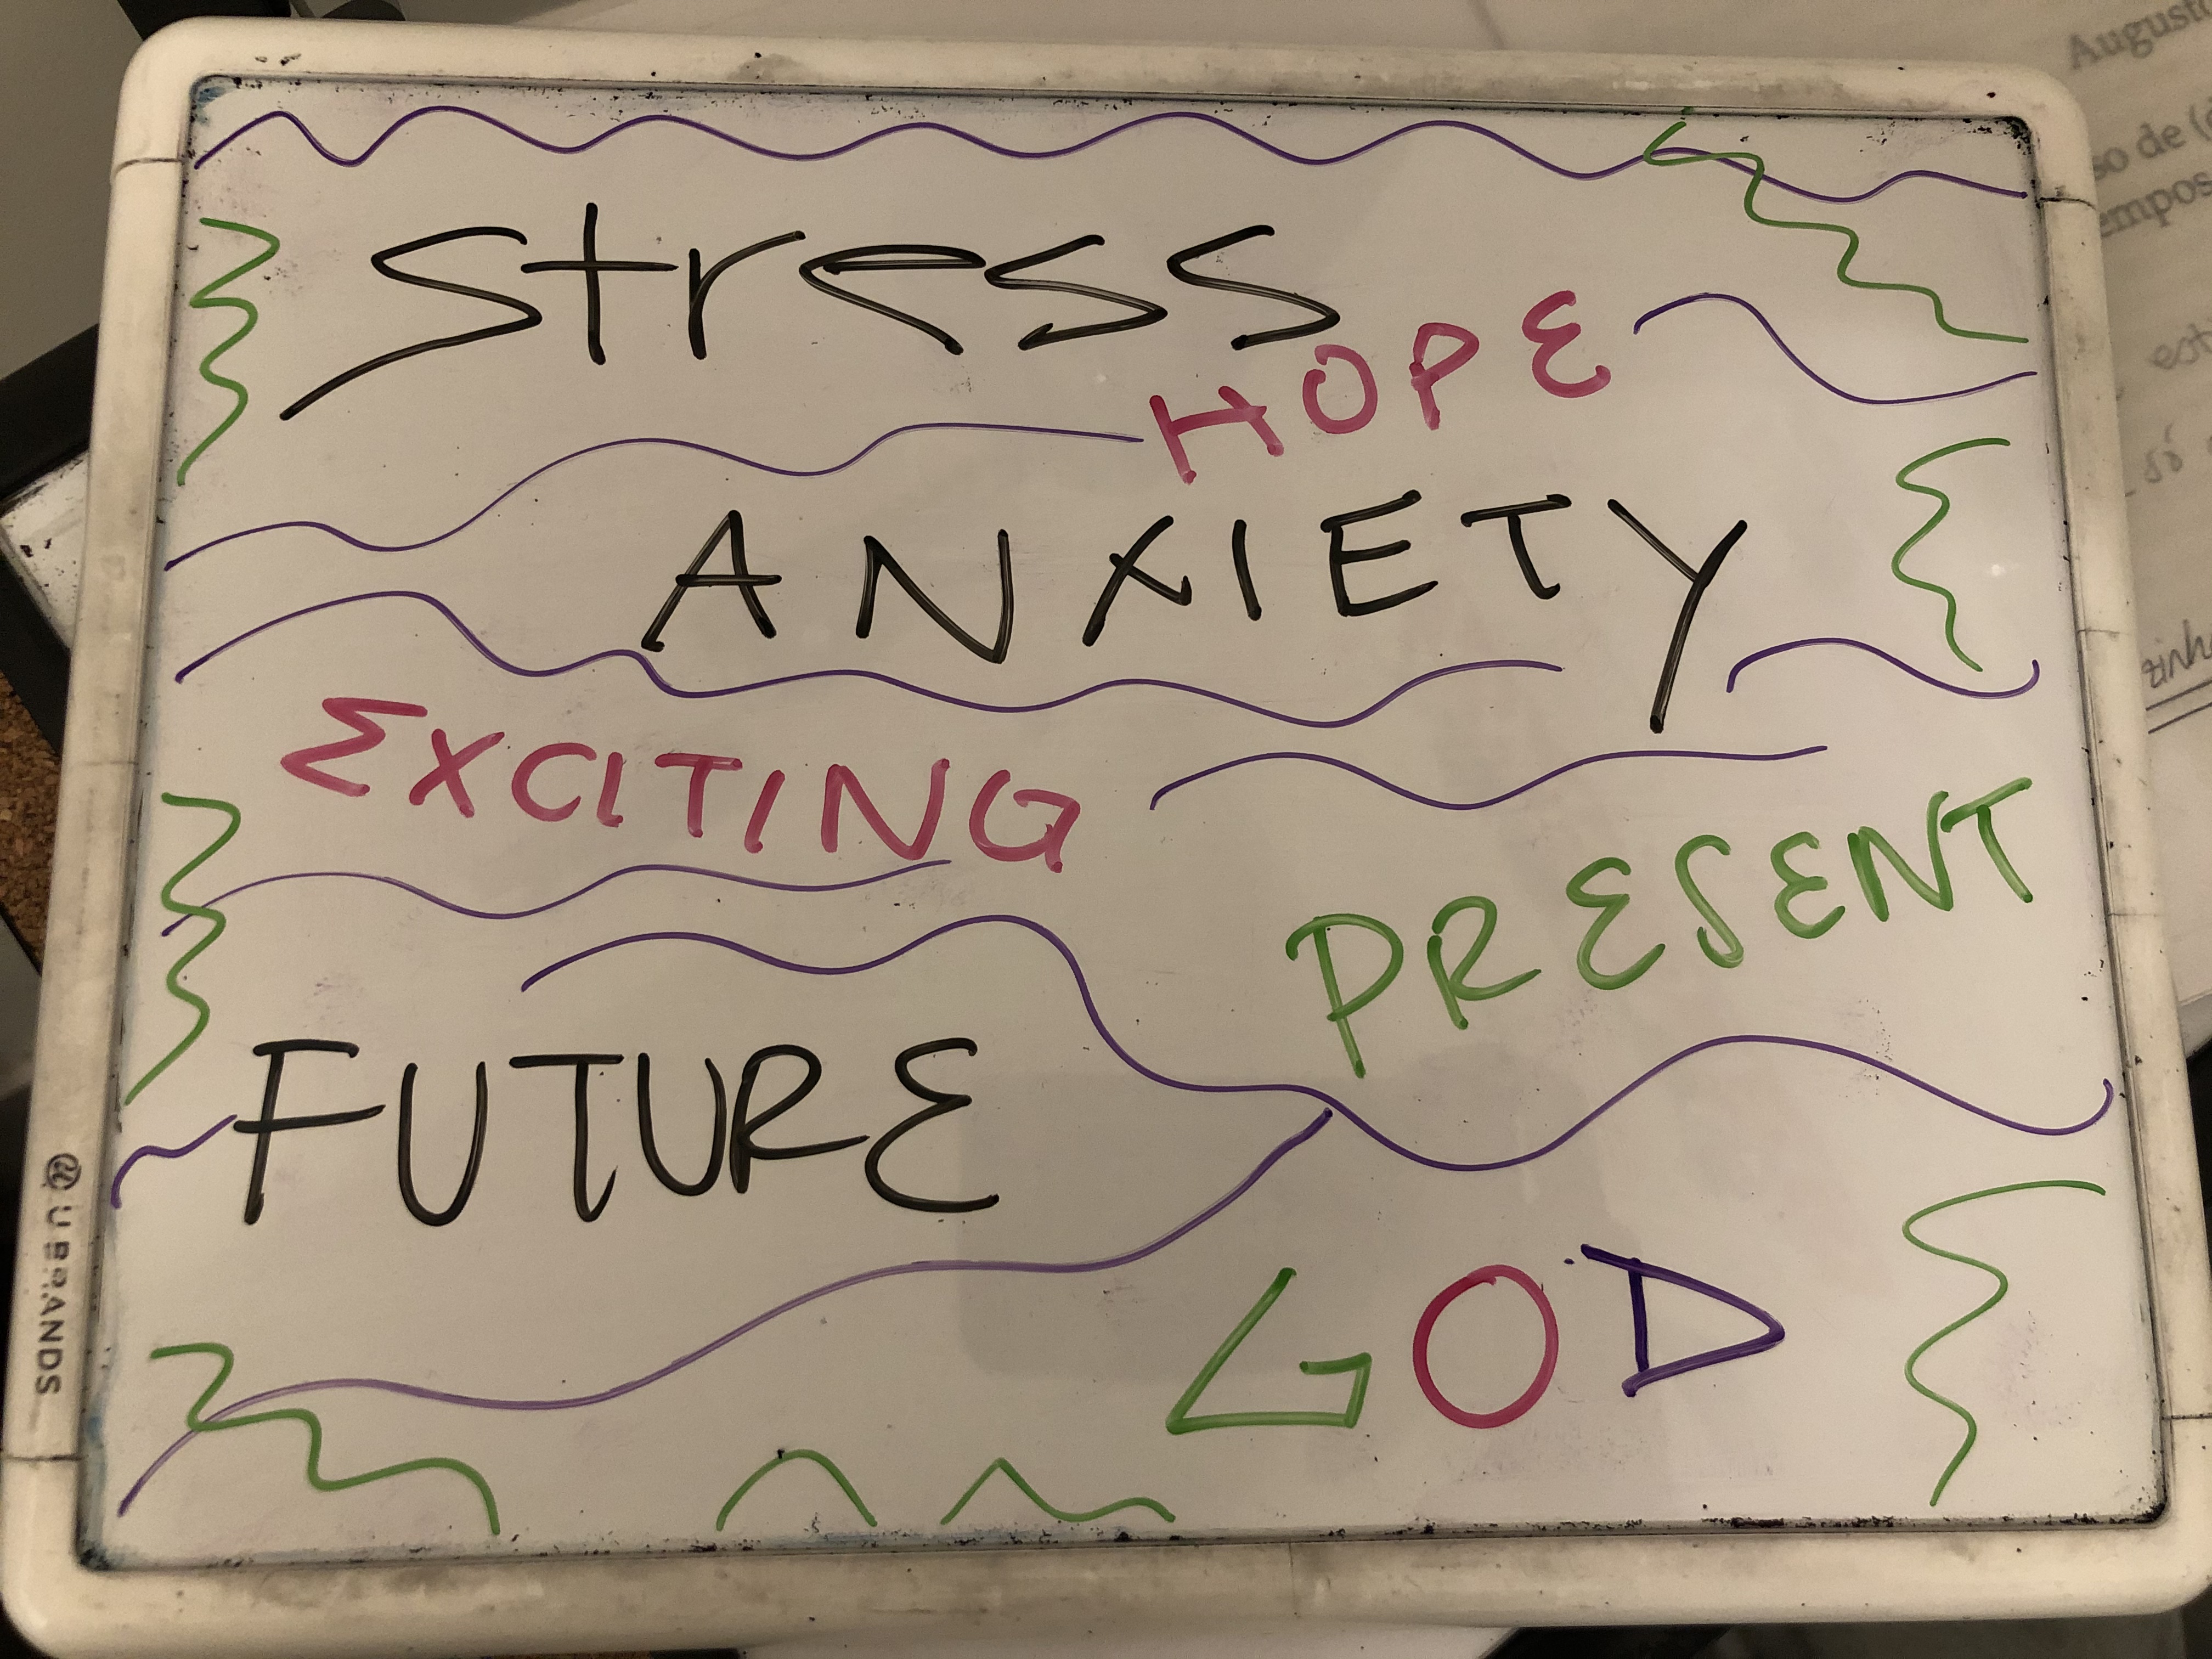 Stress
HOPE
ANXIETY
EXCITING
PRESENT
FUTURE
GOD
U BRANDS
August
so de (
empos
est
só
zinh